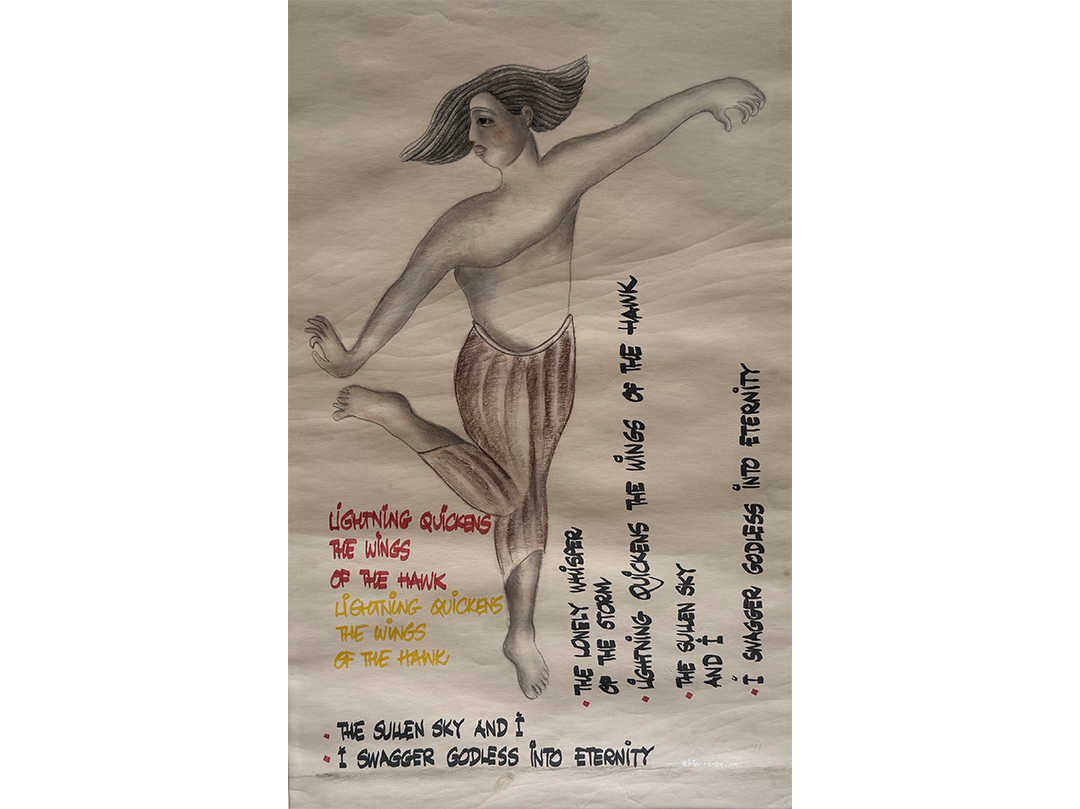 LIGHTNING QUICKENS
THE WINGS
OF THE HAWK
LIGHTNING QUICKENS
THE WINGS
OF THE HAWK
THE LONELY WHISPER
OF THE STORM
LIGHTNING QUICKENS THE WINGS OF THE HAWK
THE SULLEN SKY
AND I
I SWAGGER GODLESS INTO ETERNITY
THE SULLEN SKY AND I
I SWAGGER GODLESS INTO ETERNITY